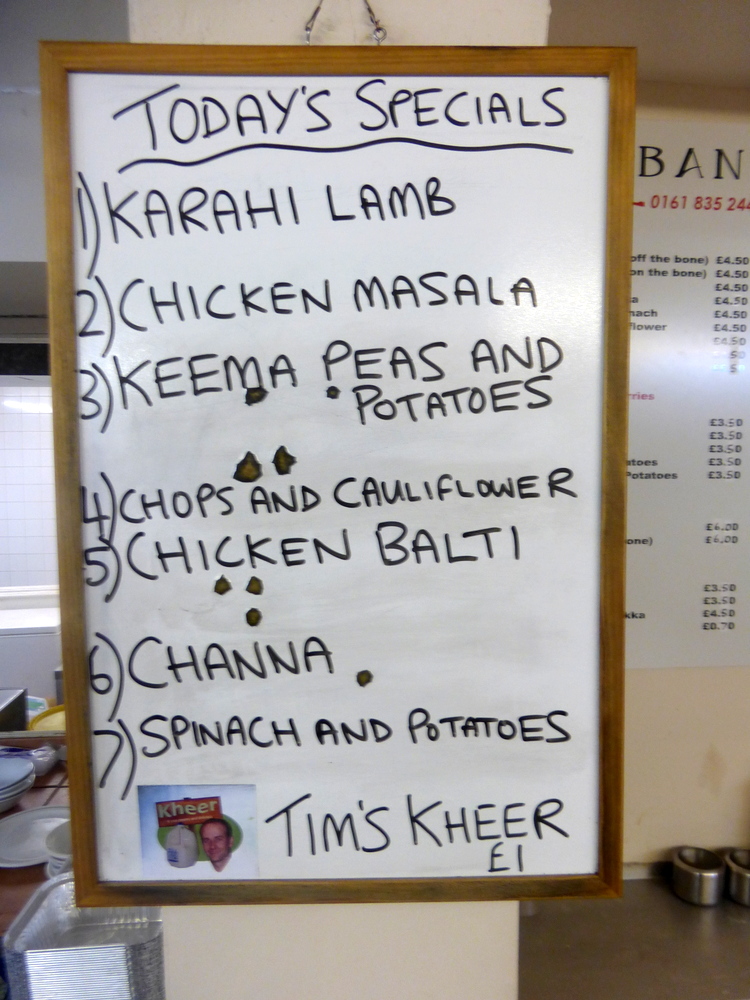 TODAY'S SPECIALS
1) KARAHI LAMB
2) CHICKEN MASALA
3) KEEMA PEAS AND
POTATOES
4) CHOPS AND CAULIFLOWER
5) CHICKEN BALTI
6) CHANNA
7) SPINACH AND POTATOES
Kheer
TIM'S KHEER
£1
BAN
0161 835 244
off the bone) £4.50
on the bone) £4.50
£4.50
a £4.50
nach £4.50
flower £4.50
£4.50
50
5
rries
£3.50
£3.50
£3.50
atoes £3.50
Potatoes £3.50
£6.00
one) £6.00
£3.50
£3.50
kka £4.50
£0.70